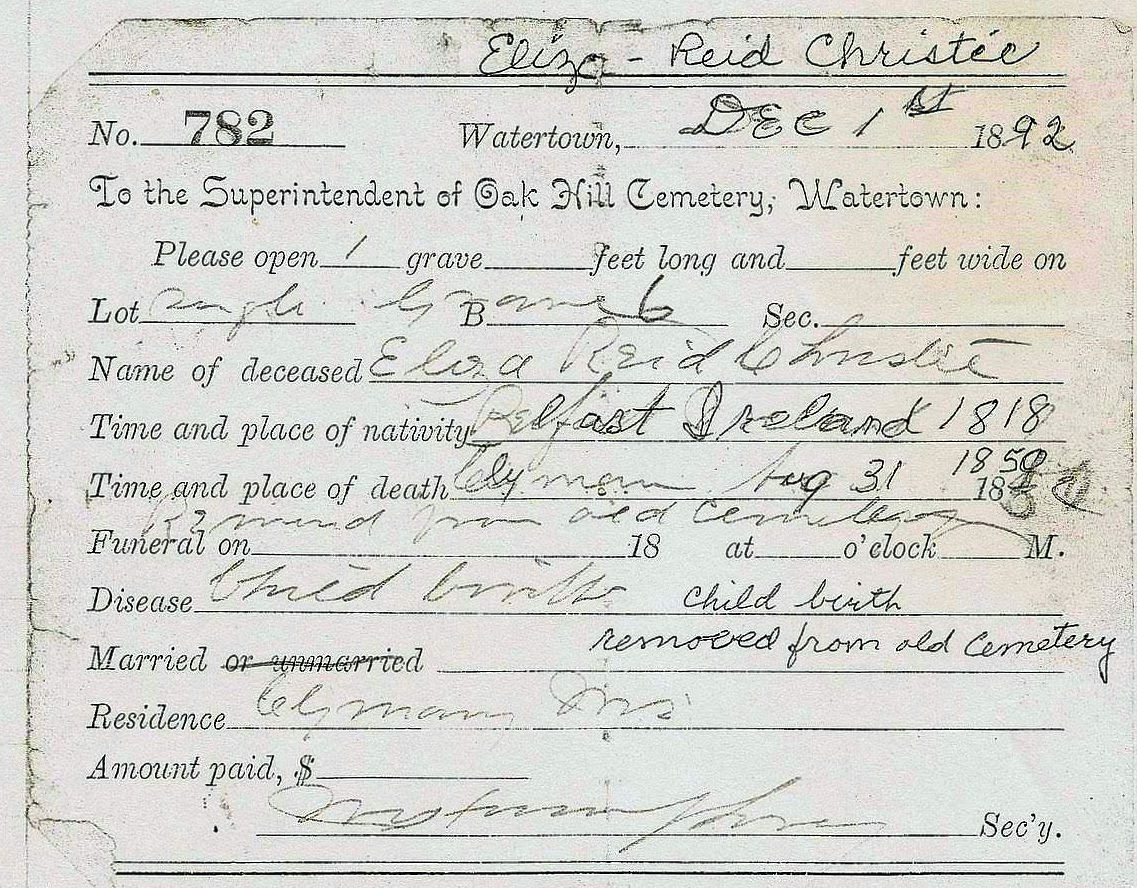 Eliza - Reid Christie
No. 782 Watertown, Dec 1st 1892
To the Superintendent of Oak Hill Cemetery, Watertown:
Please open 1 grave feet long and feet wide on
Lot single Grave B 6 Sec.
Name of deceased Eliza Reid Christie
Time and place of nativity Belfast Ireland 1818
Time and place of death Clyman Aug 31 1850 18
Removed from old Cemetery
Funeral on 18 at o'clock M.
Disease Child birth child birth
removed from old Cemetery
Married or unmarried
Residence Clyman Wis
Amount paid, $
Sec'y.